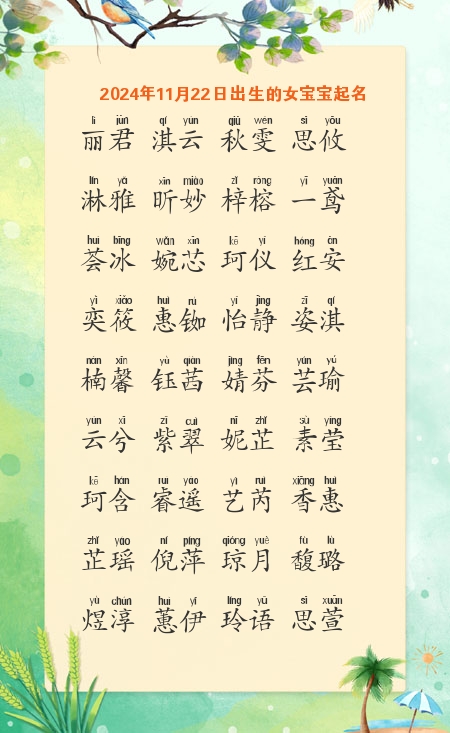 2024年11月22日出生的女宝宝起名
lì jūn qí yún qiū wén sī yōu
丽君 淇云 秋雯 思攸
lín yǎ xīn miào zǐ róng yī yuān
淋雅 昕妙 梓榕 一鸢
huì bīng wǎn xīn kē yí hóng ān
荟冰 婉芯 珂仪 红安
yì xiǎo huì rú yí jìng zī qí
奕筱 惠铷 怡静 姿淇
nán xīn yù qiàn jìng fēn yún yú
楠馨 钰茜 婧芬 芸瑜
yún xī zǐ cuì nī zhǐ sù yíng
云兮 紫翠 妮芷 素莹
kē hán ruì yáo yì ruì xiāng huì
珂含 睿遥 艺芮 香惠
zhǐ yáo ní píng qióng yuè fù lù
芷瑶 倪萍 琼月 馥璐
yù chún huì yī líng yǔ sī xuān
煜淳 蕙伊 玲语 思萱